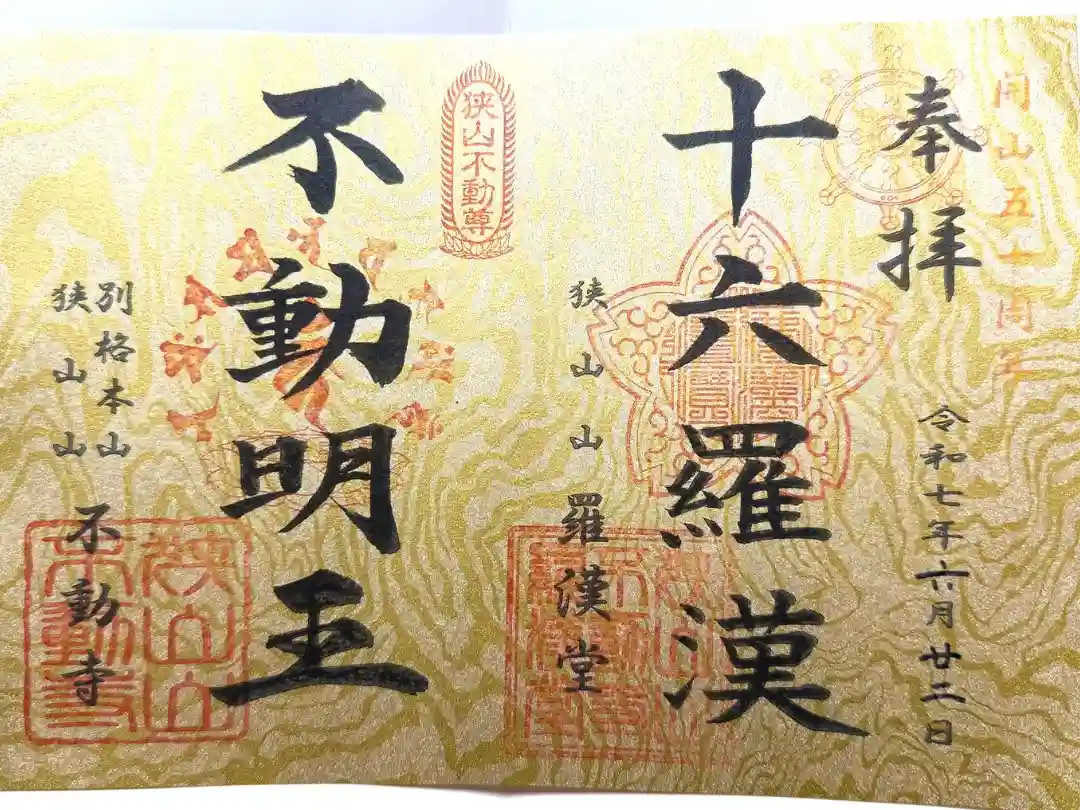 開山五十周年
奉拝
令和七年六月廿二日
十六羅漢
狭山山羅漢堂
狭山不動尊
不動明王
別格本山
狭山山不動寺
狭山山
不動寺